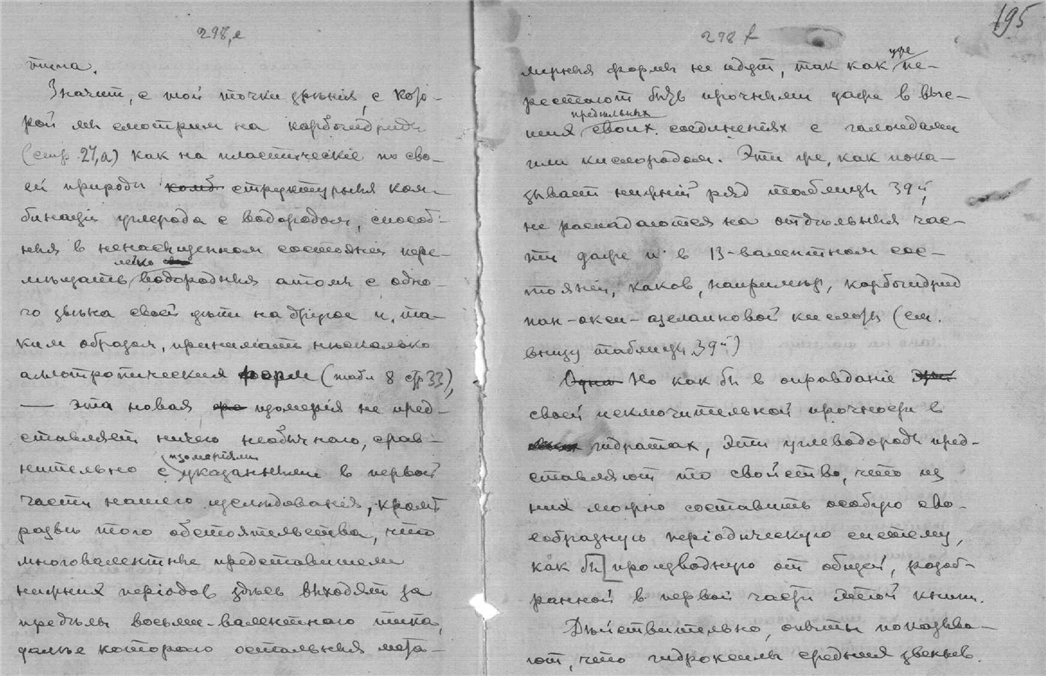 298,е
типа.
Значит, с той точки зрѣнія, с кото-
рой мы смотрим на карбогидриды
(стр. 27,а) как на пластическіе по сво-
ей природѣ структурныя ком-
бинаціи углерода с водородом, способ-
ныя в ненасыщенном состояніи пере-
легко
мѣщать водородныя атомы с одно-
го звѣна своей цѣпи на другое и, та-
ким образом, принимать нѣсколько
аллотропическия форм (табл 8 стр 33),
— эта новая изомерія не пред-
ставляет ничего необычного, срав-
изомеріями
нительно с указанными в первой
части нашего изслѣдованія, кромѣ
развѣ того обстоятельства, что
многовалентные представители
нижних періодов здѣсь выходят за
предѣлы восьми-валентного типа,
далѣе которого остальныя мета-
298 f
195
уже
мерныя формы не идут, так как пе-
рестают быть прочными даже в выс-
предѣльных
ших своих соединеніях с галоидами
или кислородом. Эти же, как пока-
зывает нижній ряд таблицы 39й,
не распадаются на отдѣльныя час-
ти даже и в 13-валентном сос-
тояніи, каков, например, карбогидрид
пан-окси-азелаиновой кислоты (см.
внизу таблицы 39й)
Но как бы в оправданіе
своей исключительной прочности в
гидратах, эти углеводороды пред-
ставляют то свойство, что из
них можно составить особую сво-
еобразную періодическую систему,
как бы производную от общей, разоб-
ранной в первой части этой книги.
Дѣйствительно, опыты показыва-
ют, что гидроксилы средних звеньев